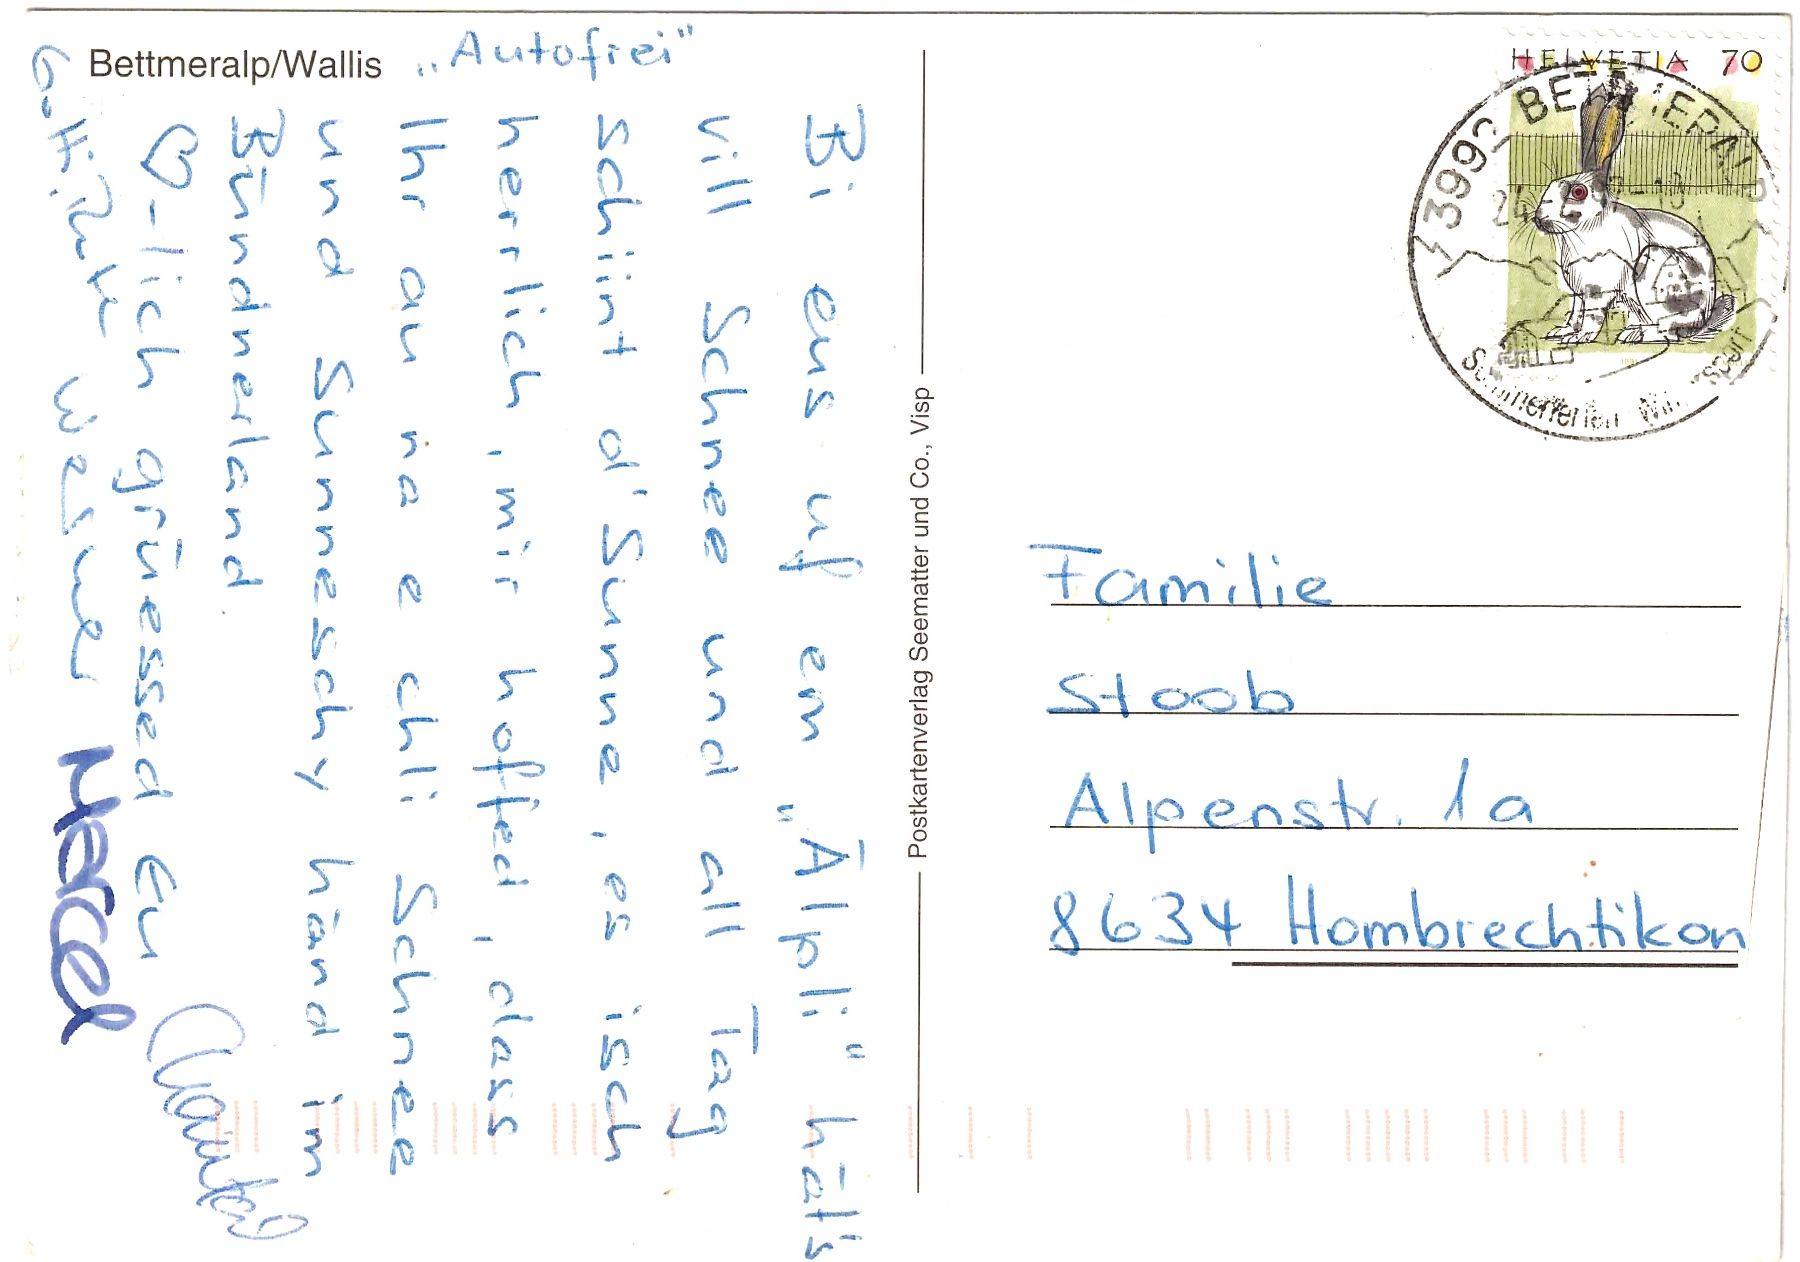 Bettmeralp/Wallis „Autofrei"
Bi eus uf em „Älpli" hät's
vill Schnee und all Tag
schiint d'Sunne, es isch
herrlich, mir hoffed, dass
Ihr au na e chli Schnee
und Sunneschy händ im
Bündnerland.
♡-lich grüessed Eu
Marcel
Postkartenverlag Seematter und Co., Visp
HELVETIA 70
3992 BETTMERALP
Familie
Stoob
Alpenstr. 1a
8634 Hombrechtikon